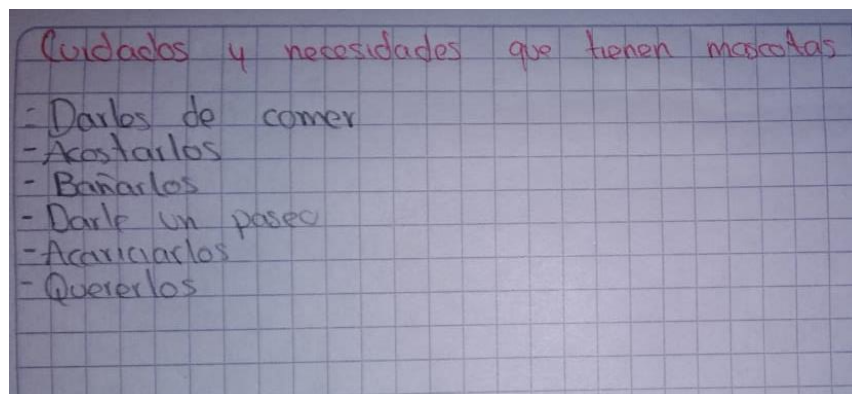 Cuidados y necesidades que tienen mascotas
- Darlos de comer
- Acostarlos
- Bañarlos
- Darle un paseo
- Acariciarlos
- Quererlos